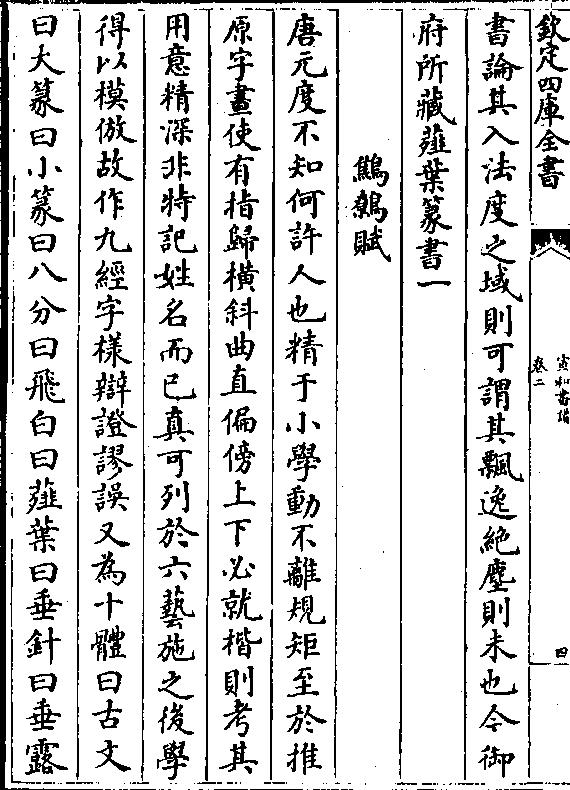 欽定四庫全書
宣和書譜
卷二
四
書論其入法度之域則可謂其飄逸絶塵則未也今御
府所藏薤葉篆書一
鷓鴣賦
唐元度不知何許人也精于小學動不離規矩至於推
原字畫使有指歸横斜曲直偏傍上下必就楷則考其
用意精深非特記姓名而已真可列於六藝施之後學
得以模倣故作九經字様辯證謬誤又為十體曰古文
曰大篆曰小篆曰八分曰飛白曰薤葉曰垂針曰垂露